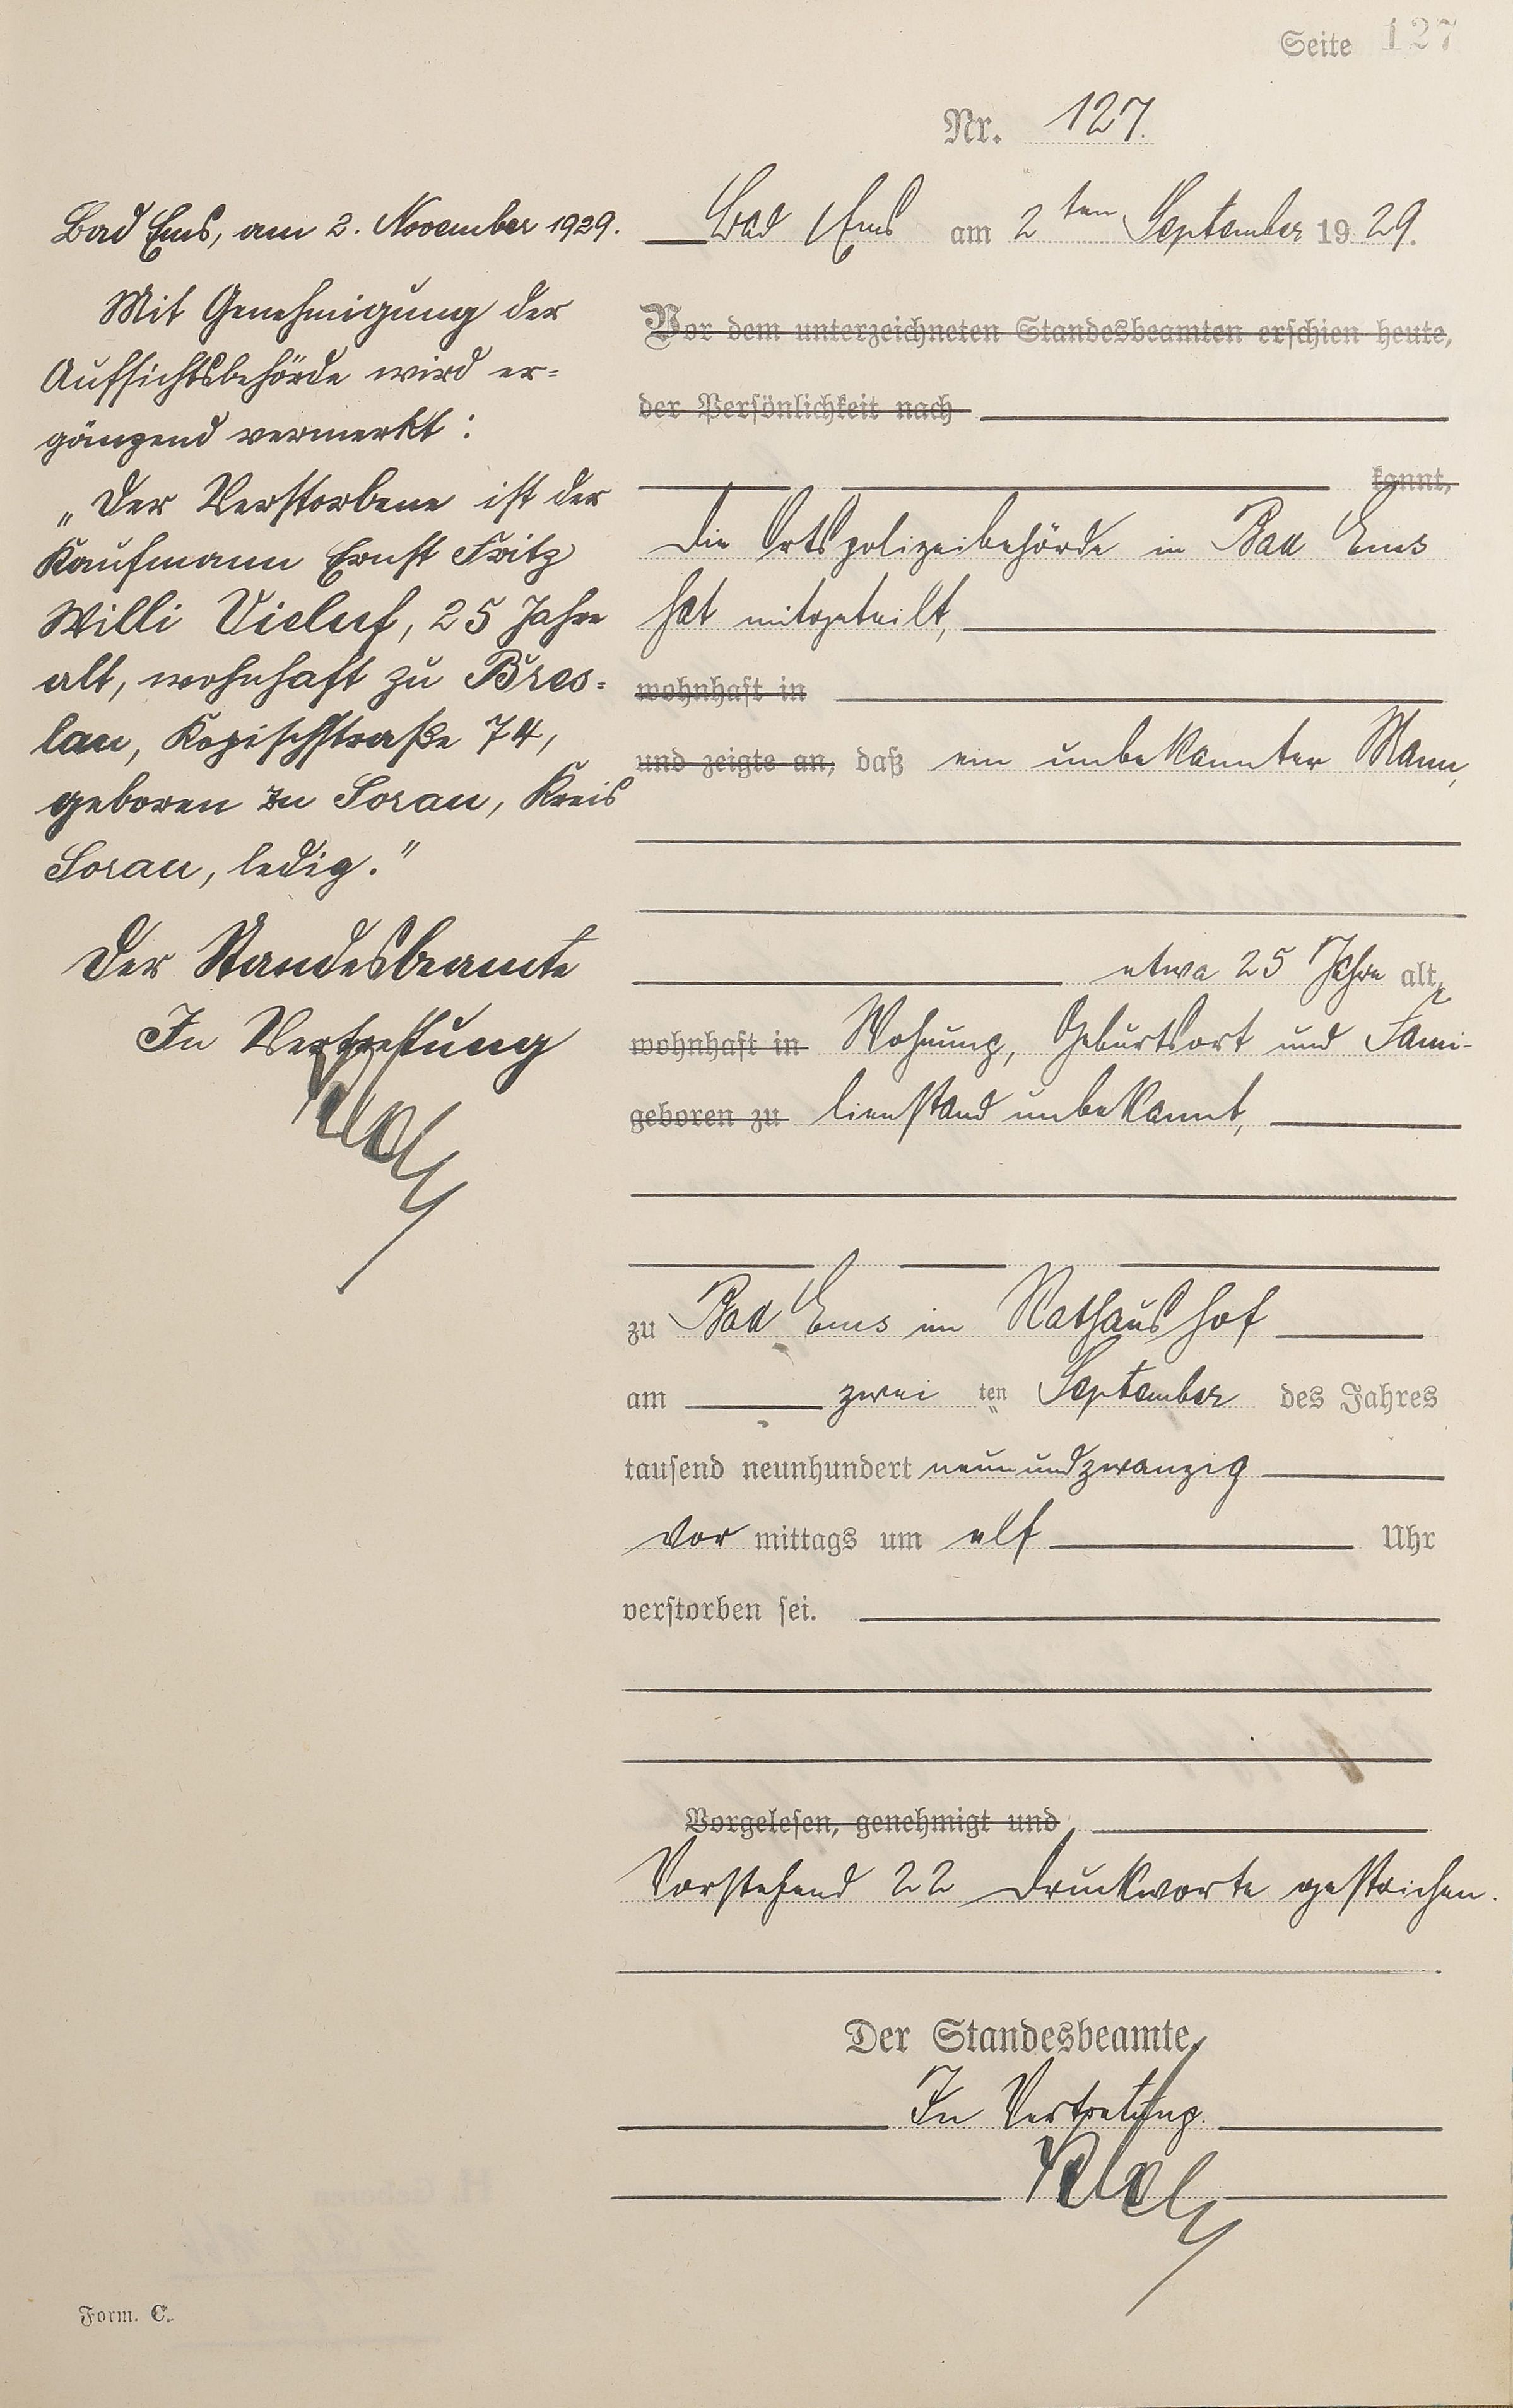 Seite 127
Nr. 127.
Bad Ems am 2ten September 1929.
Vor dem unterzeichneten Standesbeamten erschien heute,
der Persönlichkeit nach
kannt,
die Ortspolizeibehörde in Bad Ems
hat mitgeteilt,
wohnhaft in
und zeigte an, daß ein unbekannter Mann,
etwa 25 Jahre alt,
wohnhaft in Wohnung, Geburtsort und Fami-
geboren zu lienstand unbekannt,
zu Bad Ems im Rathaushof
am zwei ten September des Jahres
tausend neunhundert neunundzwanzig
vor mittags um elf Uhr
verstorben sei.
Vorgelesen, genehmigt und
Vorstehend 22 Druckworte gestrichen.
Der Standesbeamte.
In Vertretung.
Bad Ems, am 2. November 1929.
Mit Genehmigung der
Aufsichtsbehörde wird er=
gänzend vermerkt:
„Der Verstorbene ist der
Kaufmann Ernst Fritz
Willi Vieluf, 25 Jahre
alt, wohnhaft zu Bres=
lau, Kopischstraße 74,
geboren zu Sorau, Kreis
Sorau, ledig."
Der Standesbeamte
In Vertretung
Form. C.